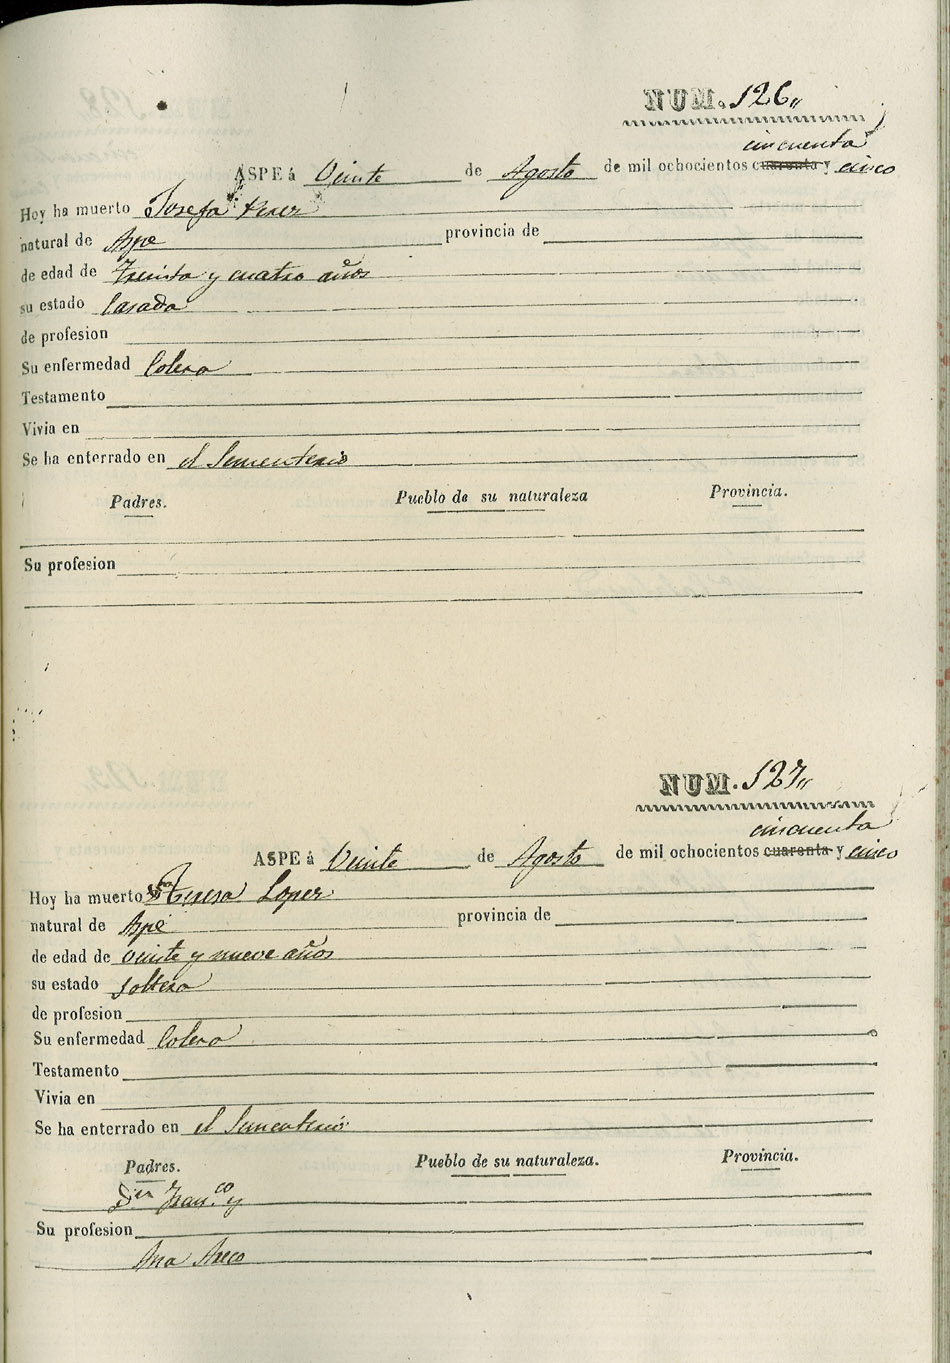 NUM. 126,,
cincuenta
ASPE á Veinte de Agosto de mil ochocientos cuarenta y cinco
Hoy ha muerto Josefa Perez
natural de Aspe provincia de
de edad de Treinta y cuatro años
su estado Casada
de profesion
Su enfermedad Colera
Testamento
Vivia en
Se ha enterrado en el Sementerio
Padres. Pueblo de su naturaleza Provincia.
Su profesion
NUM. 127,,
cincuenta
ASPE á Veinte de Agosto de mil ochocientos cuarenta y cinco
Hoy ha muerto Teresa Lopez
natural de Aspe provincia de
de edad de Veinte y nueve años
su estado Soltera
de profesion
Su enfermedad Colera
Testamento
Vivia en
Se ha enterrado en el Sementerio
Padres. Pueblo de su naturaleza. Provincia.
Franco y
Su profesion
Ana